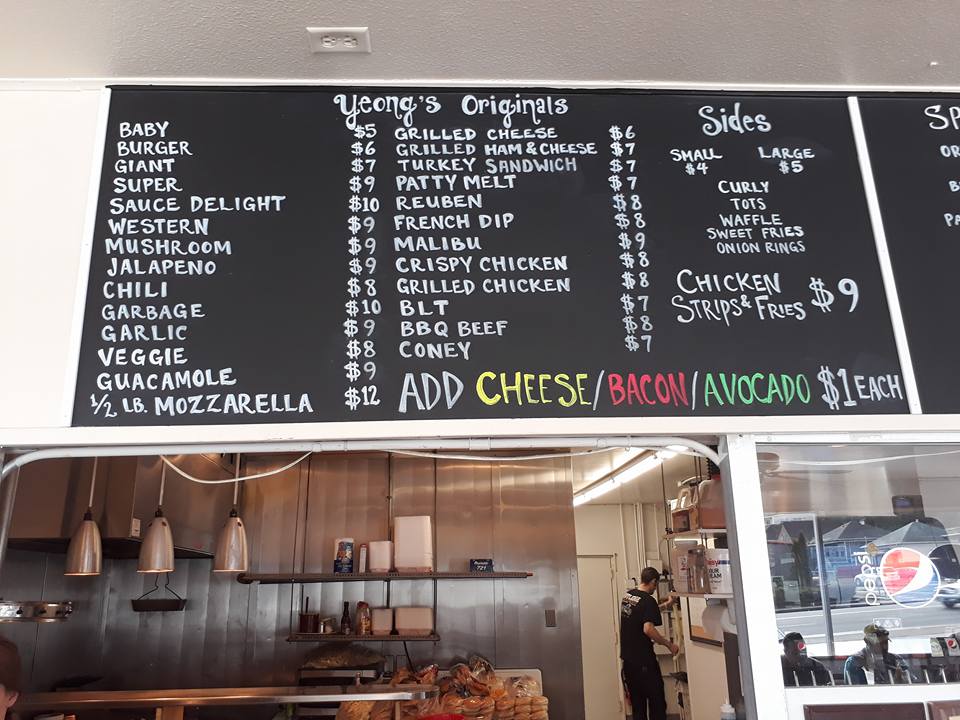 Yeong's Originals
BABY $5
BURGER $6
GIANT $7
SUPER $9
SAUCE DELIGHT $10
WESTERN $9
MUSHROOM $9
JALAPENO $9
CHILI $8
GARBAGE $10
GARLIC $9
VEGGIE $8
GUACAMOLE $9
1/2 LB. MOZZARELLA $12
GRILLED CHEESE $6
GRILLED HAM & CHEESE $7
TURKEY SANDWICH $7
PATTY MELT $7
REUBEN $8
FRENCH DIP $8
MALIBU $9
CRISPY CHICKEN $8
GRILLED CHICKEN $8
BLT $7
BBQ BEEF $8
CONEY $7
ADD CHEESE/BACON/AVOCADO $1 EACH
Sides
SMALL LARGE
$4 $5
CURLY
TOTS
WAFFLE
SWEET FRIES
ONION RINGS
CHICKEN
STRIPS & FRIES $9
pepsi